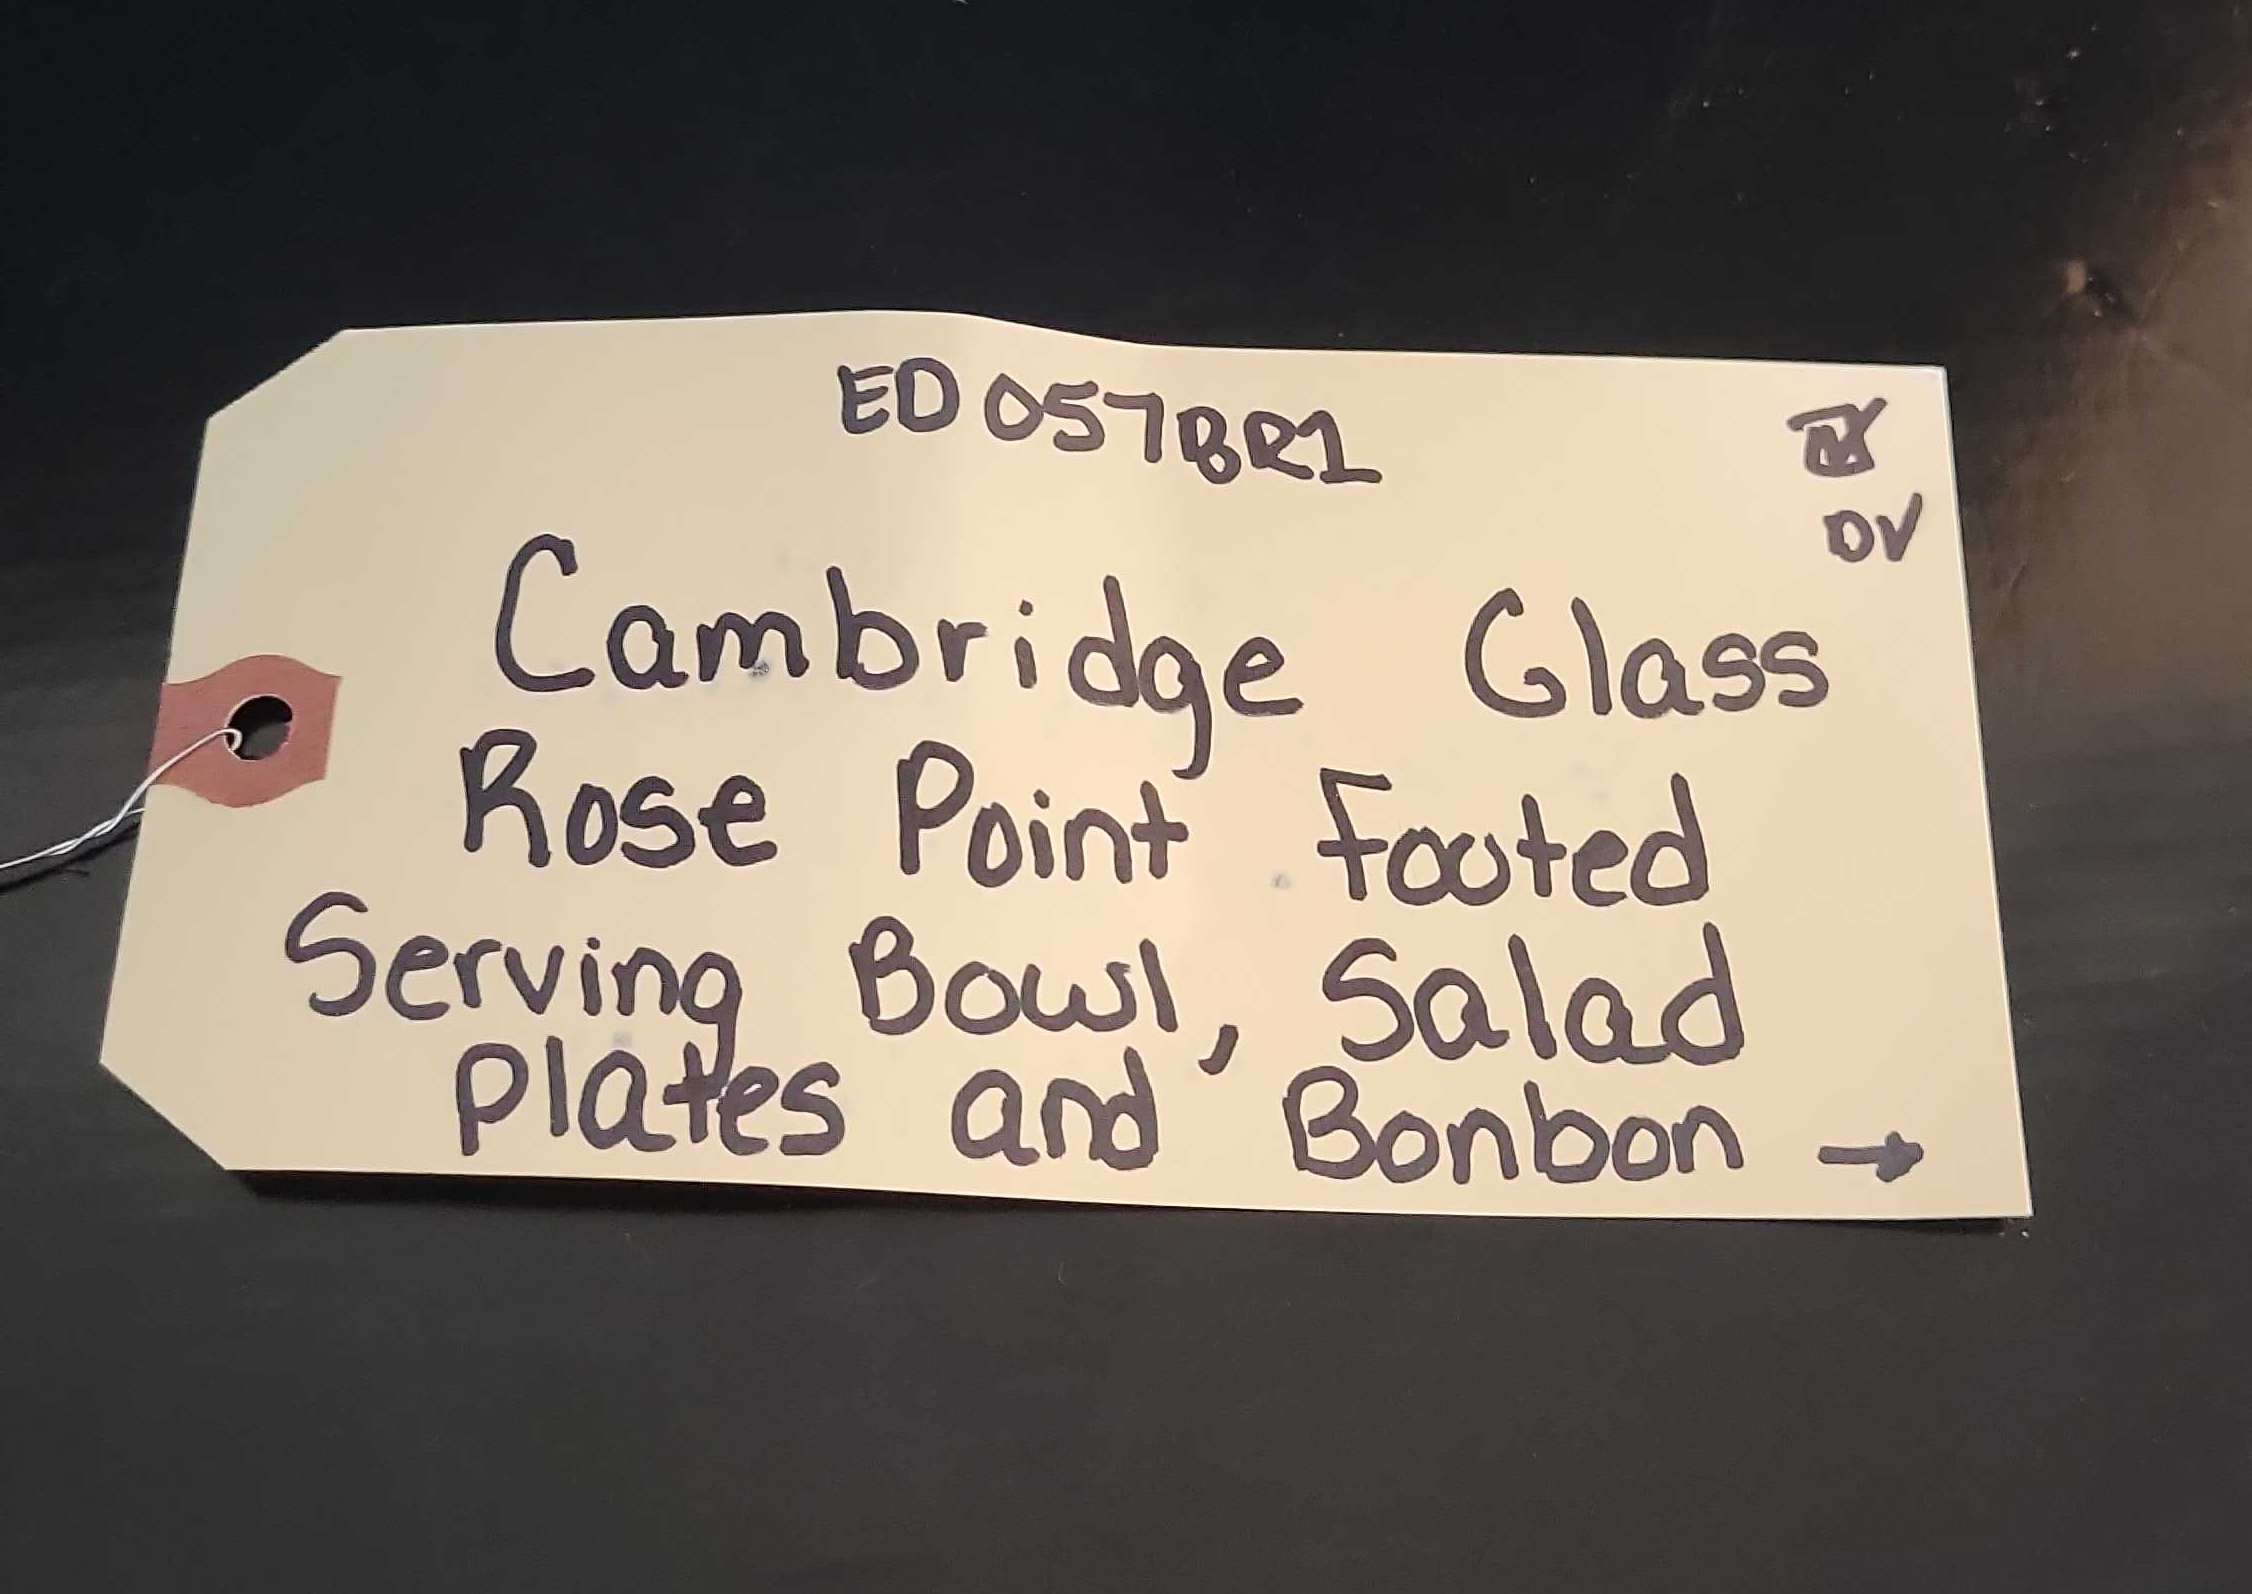 ED057BR1
DV
Cambridge Glass
Rose Point Footed
Serving Bowl, Salad
Plates and Bonbon →